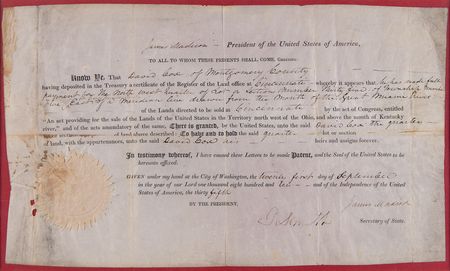 James Madison President of the United States of America,
TO ALL TO WHOM THESE PRESENTS SHALL COME, GREETING:
Know Ye, That David Cox of Montgomery County
having deposited in the Treasury a certificate of the Register of the Land office at Cincinnati whereby it appears that he has made full
payment for the North West quarter of Lot or Section Number Thirty of Township Number
East of a Meridian line drawn from the Mouth of the Great Miami River
of the Lands directed to be sold at Cincinnati by the act of Congress, entitled
"An act providing for the sale of the Lands of the United States in the Territory north west of the Ohio, and above the mouth of Kentucky
river," and of the acts amendatory of the same, There is granted, by the United States, unto the said David Cox the quarter
lot or section of land above described: To have and to hold the said quarter lot or section
of land, with the appurtenances, unto the said David Cox his heirs and assigns forever.
In testimony whereof, I have caused these Letters to be made Patent, and the Seal of the United States to be
hereunto affixed.
GIVEN under my hand at the City of Washington, the twenty first day of September
in the year of our Lord one thousand eight hundred and ten and of the Independence of the United
States of America, the thirty fifth
James Madison
BY THE PRESIDENT,
Secretary of State.